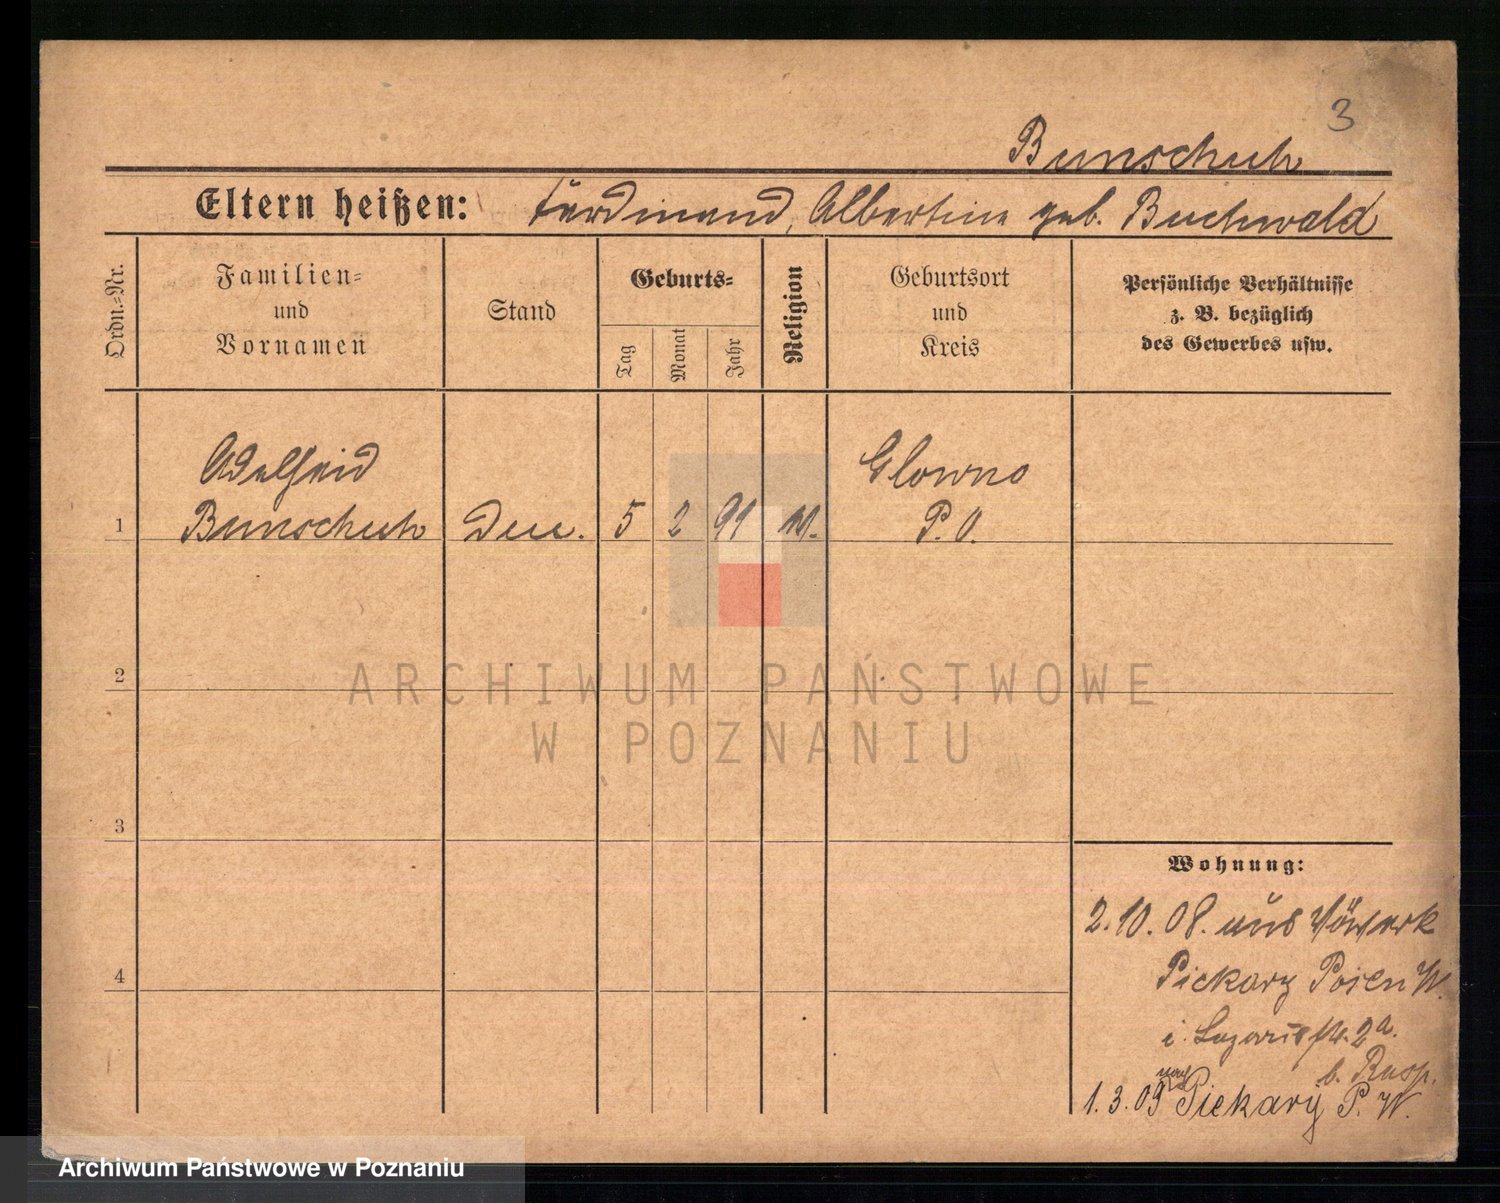 3
Bunschuh
Eltern heißen: Ferdinand, Albertine geb. Buchwald
Ordn.-Nr.
Familien-
und
Vornamen
Stand
Geburts-
Tag
Monat
Jahr
Religion
Geburtsort
und
Kreis
Persönliche Verhältnisse
z. B. bezüglich
des Gewerbes usw.
Adelheid
Glowno
1 Bunschuh 5 2 91 P. O.
2
ARCHIWUM PAŃSTWOWE
W POZNANIU
3
4
Wohnung:
2.10.08. aus Vorwerk
Pickary Posen W.
i. Lazarusstr. 2a.
b. Rasp.
nach
1.3.09 Piekary P. W.
Archiwum Państwowe w Poznaniu